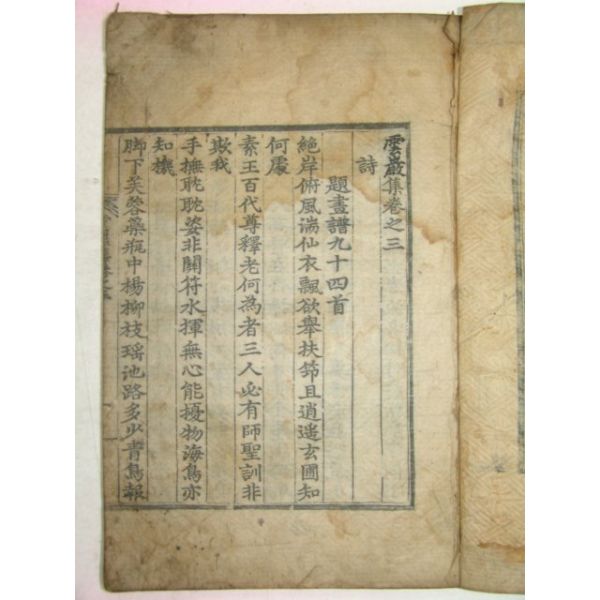 雲巖集卷之三
詩
題畫譜九十四首
絶岸俯風湍仙衣飄欲擧扶筇且逍遥玄圃知
何處
素王百代尊釋老何為者三人必有師聖訓非
欺我
手撫耽耽姿非關符水揮無心能擾物海鳥亦
知機
脚下芙蓉藥瓶中楊柳枝瑶池路多少青鳥報